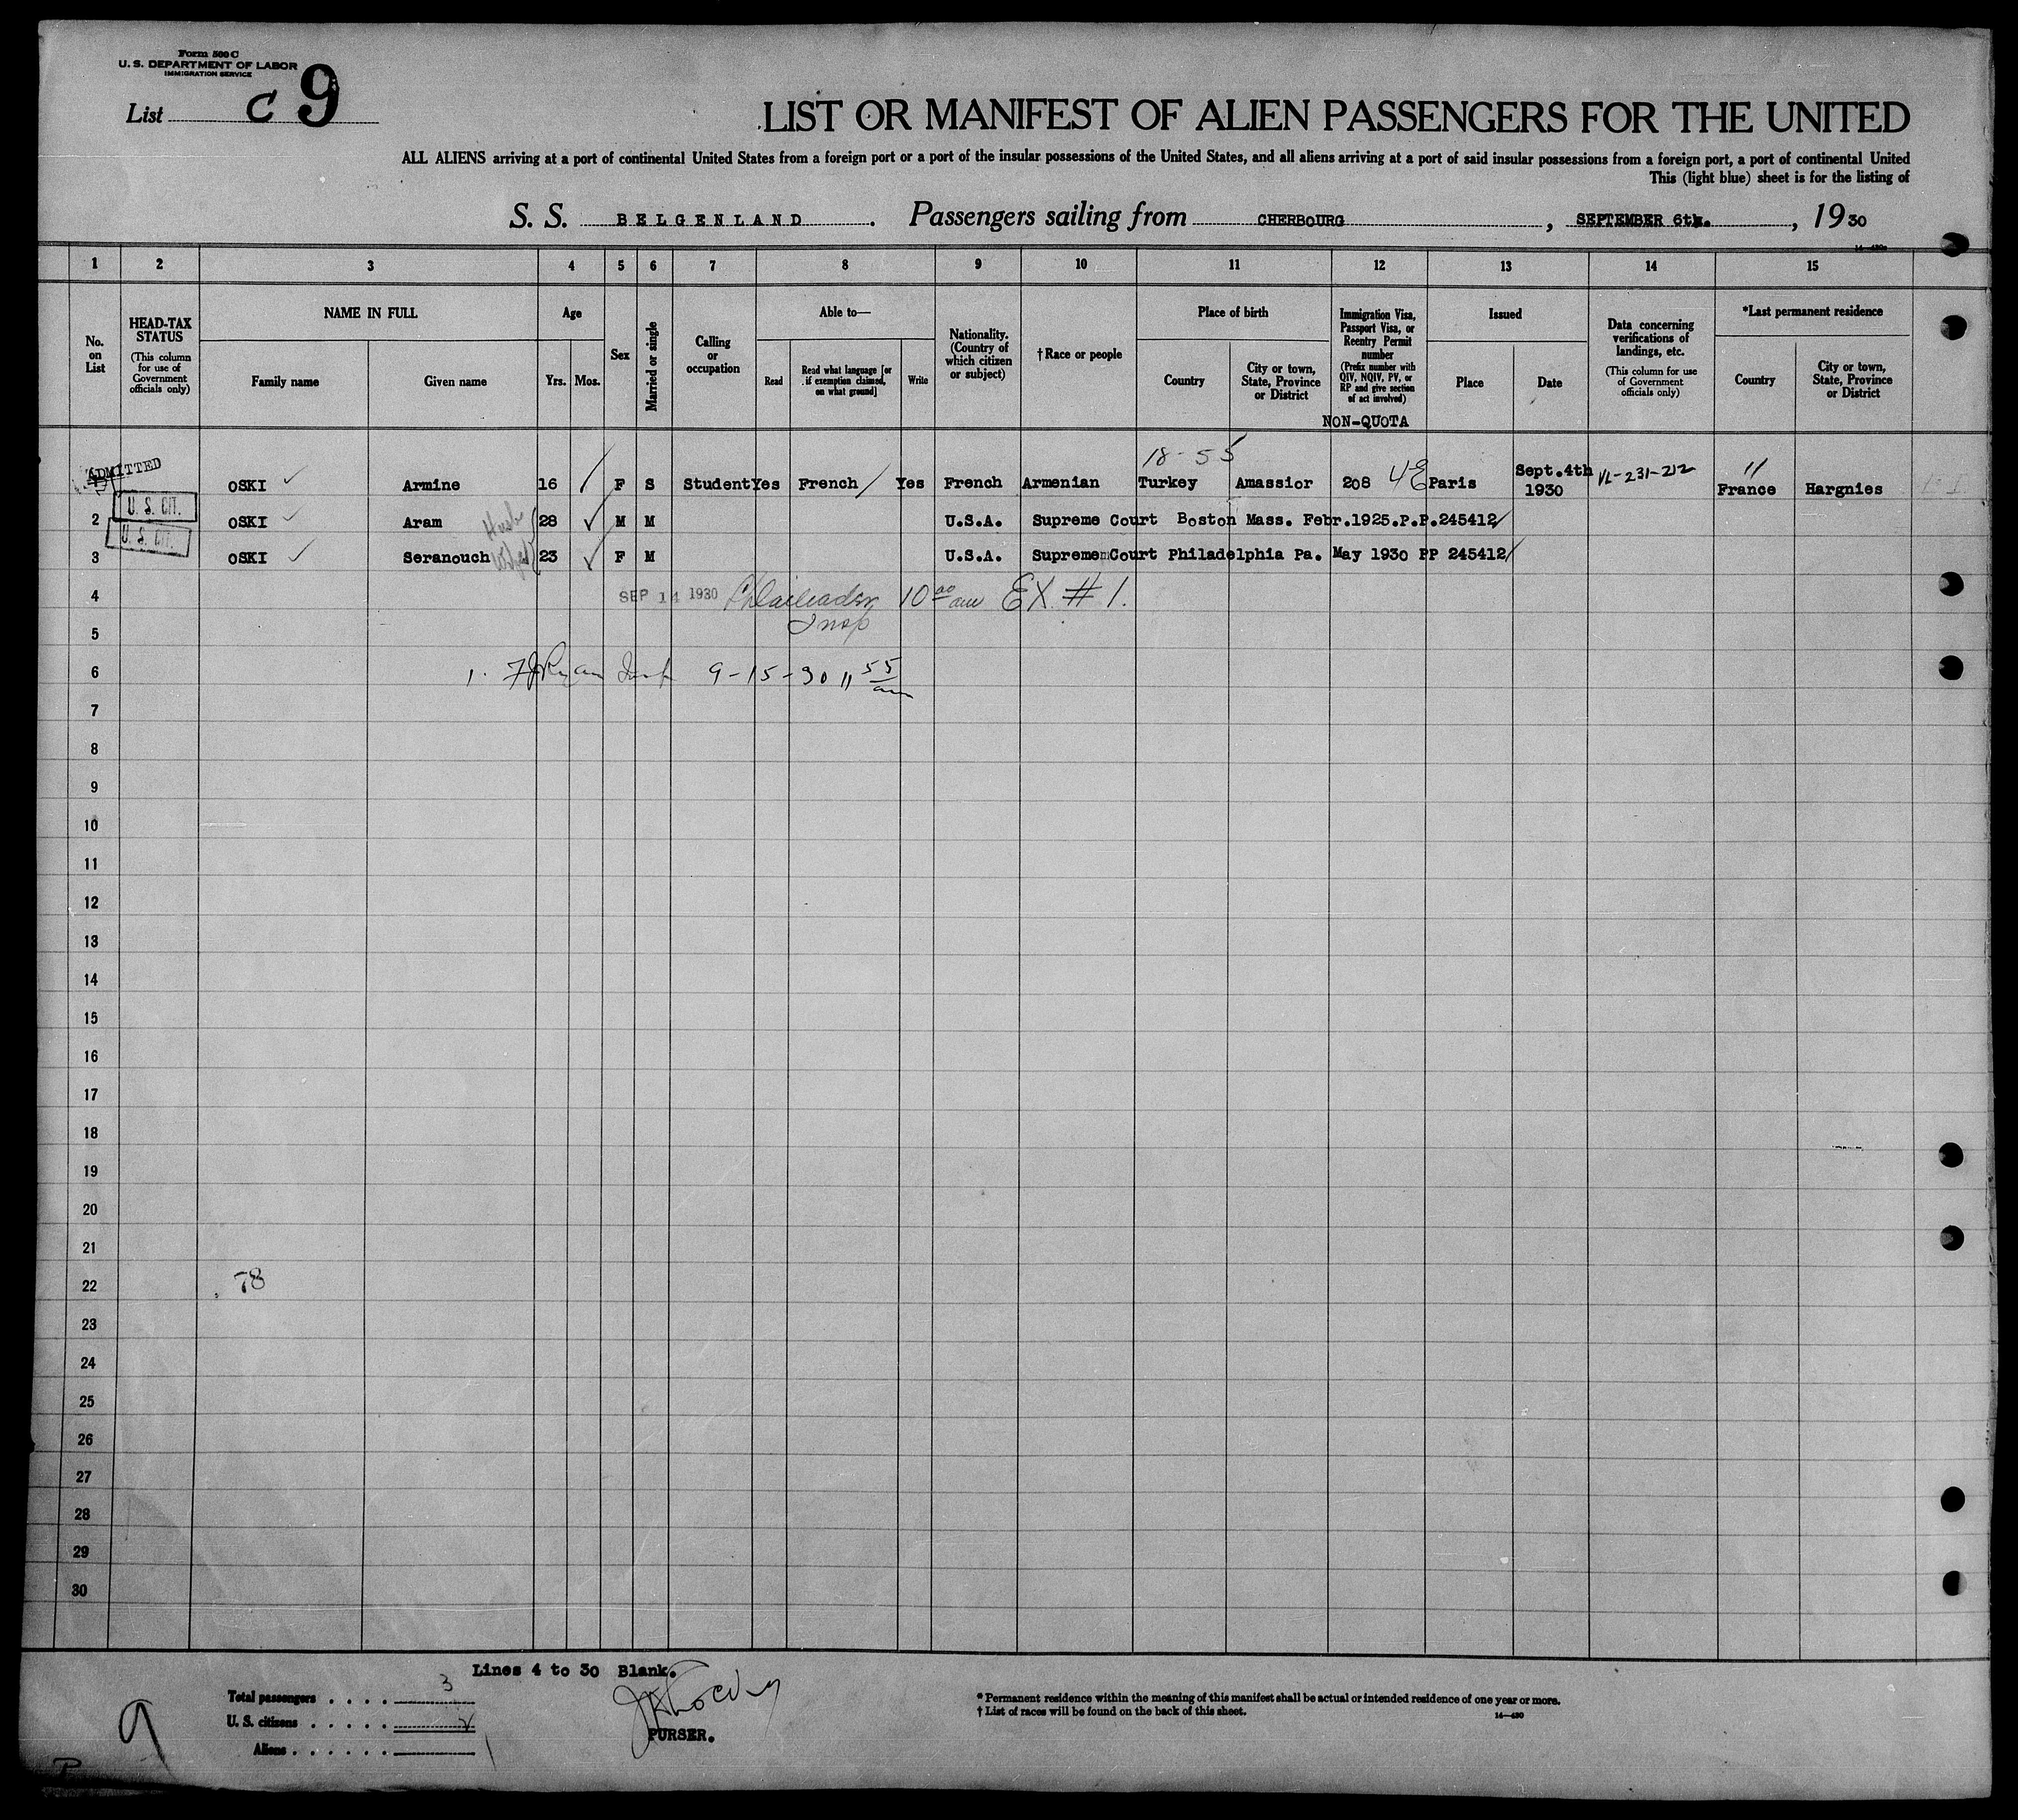 Form 500 C
U. S. DEPARTMENT OF LABOR
IMMIGRATION SERVICE
List C 9
LIST OR MANIFEST OF ALIEN PASSENGERS FOR THE UNITED
ALL ALIENS arriving at a port of continental United States from a foreign port or a port of the insular possessions of the United States, and all aliens arriving at a port of said insular possessions from a foreign port, a port of continental United
This (light blue) sheet is for the listing of
S. S. BELGENLAND. Passengers sailing from CHERBOURG, SEPTEMBER 6th., 1930
1 2 3 4 5 6 7 8 9 10 11 12 13 14 15
No. on List
HEAD-TAX STATUS
(This column for use of Government officials only)
NAME IN FULL
Family name
Given name
Age
Yrs. Mos.
Sex
Married or single
Calling or occupation
Able to—
Read
Read what language [or if exemption claimed, on what ground]
Write
Nationality. (Country of which citizen or subject)
†Race or people
Place of birth
Country
City or town, State, Province or District
Immigration Visa, Passport Visa, or Reentry Permit number
(Prefix number with QIV, NQIV, PV, or RP and give section of act involved)
NON-QUOTA
Issued
Place
Date
Data concerning verifications of landings, etc.
(This column for use of Government officials only)
*Last permanent residence
Country
City or town, State, Province or District
18-55
ADMITTED
OSKI Armine 16 F S Student Yes French Yes French Armenian Turkey Amassior 208 4E Paris Sept.4th 1930 VL-231-212 France Hargnies
U. S. CIT.
2 OSKI Aram Husb 28 M M U.S.A. Supreme Court Boston Mass. Febr.1925.P.P.245412
U. S. CIT.
3 OSKI Seranouch 23 F M U.S.A. Supreme Court Philadelphia Pa. May 1930 PP 245412
4 SEP 14 1930 10 00 am EX #1.
Insp
5
6 1. F J Ryan Insp 9-15-30 11 55 am
7
8
9
10
11
12
13
14
15
16
17
18
19
20
21
22 78
23
24
25
26
27
28
29
30
Lines 4 to 30 Blank.
Total passengers 3
U. S. citizens 2
Aliens 1
PURSER.
* Permanent residence within the meaning of this manifest shall be actual or intended residence of one year or more.
† List of races will be found on the back of this sheet.
14—430
9
P